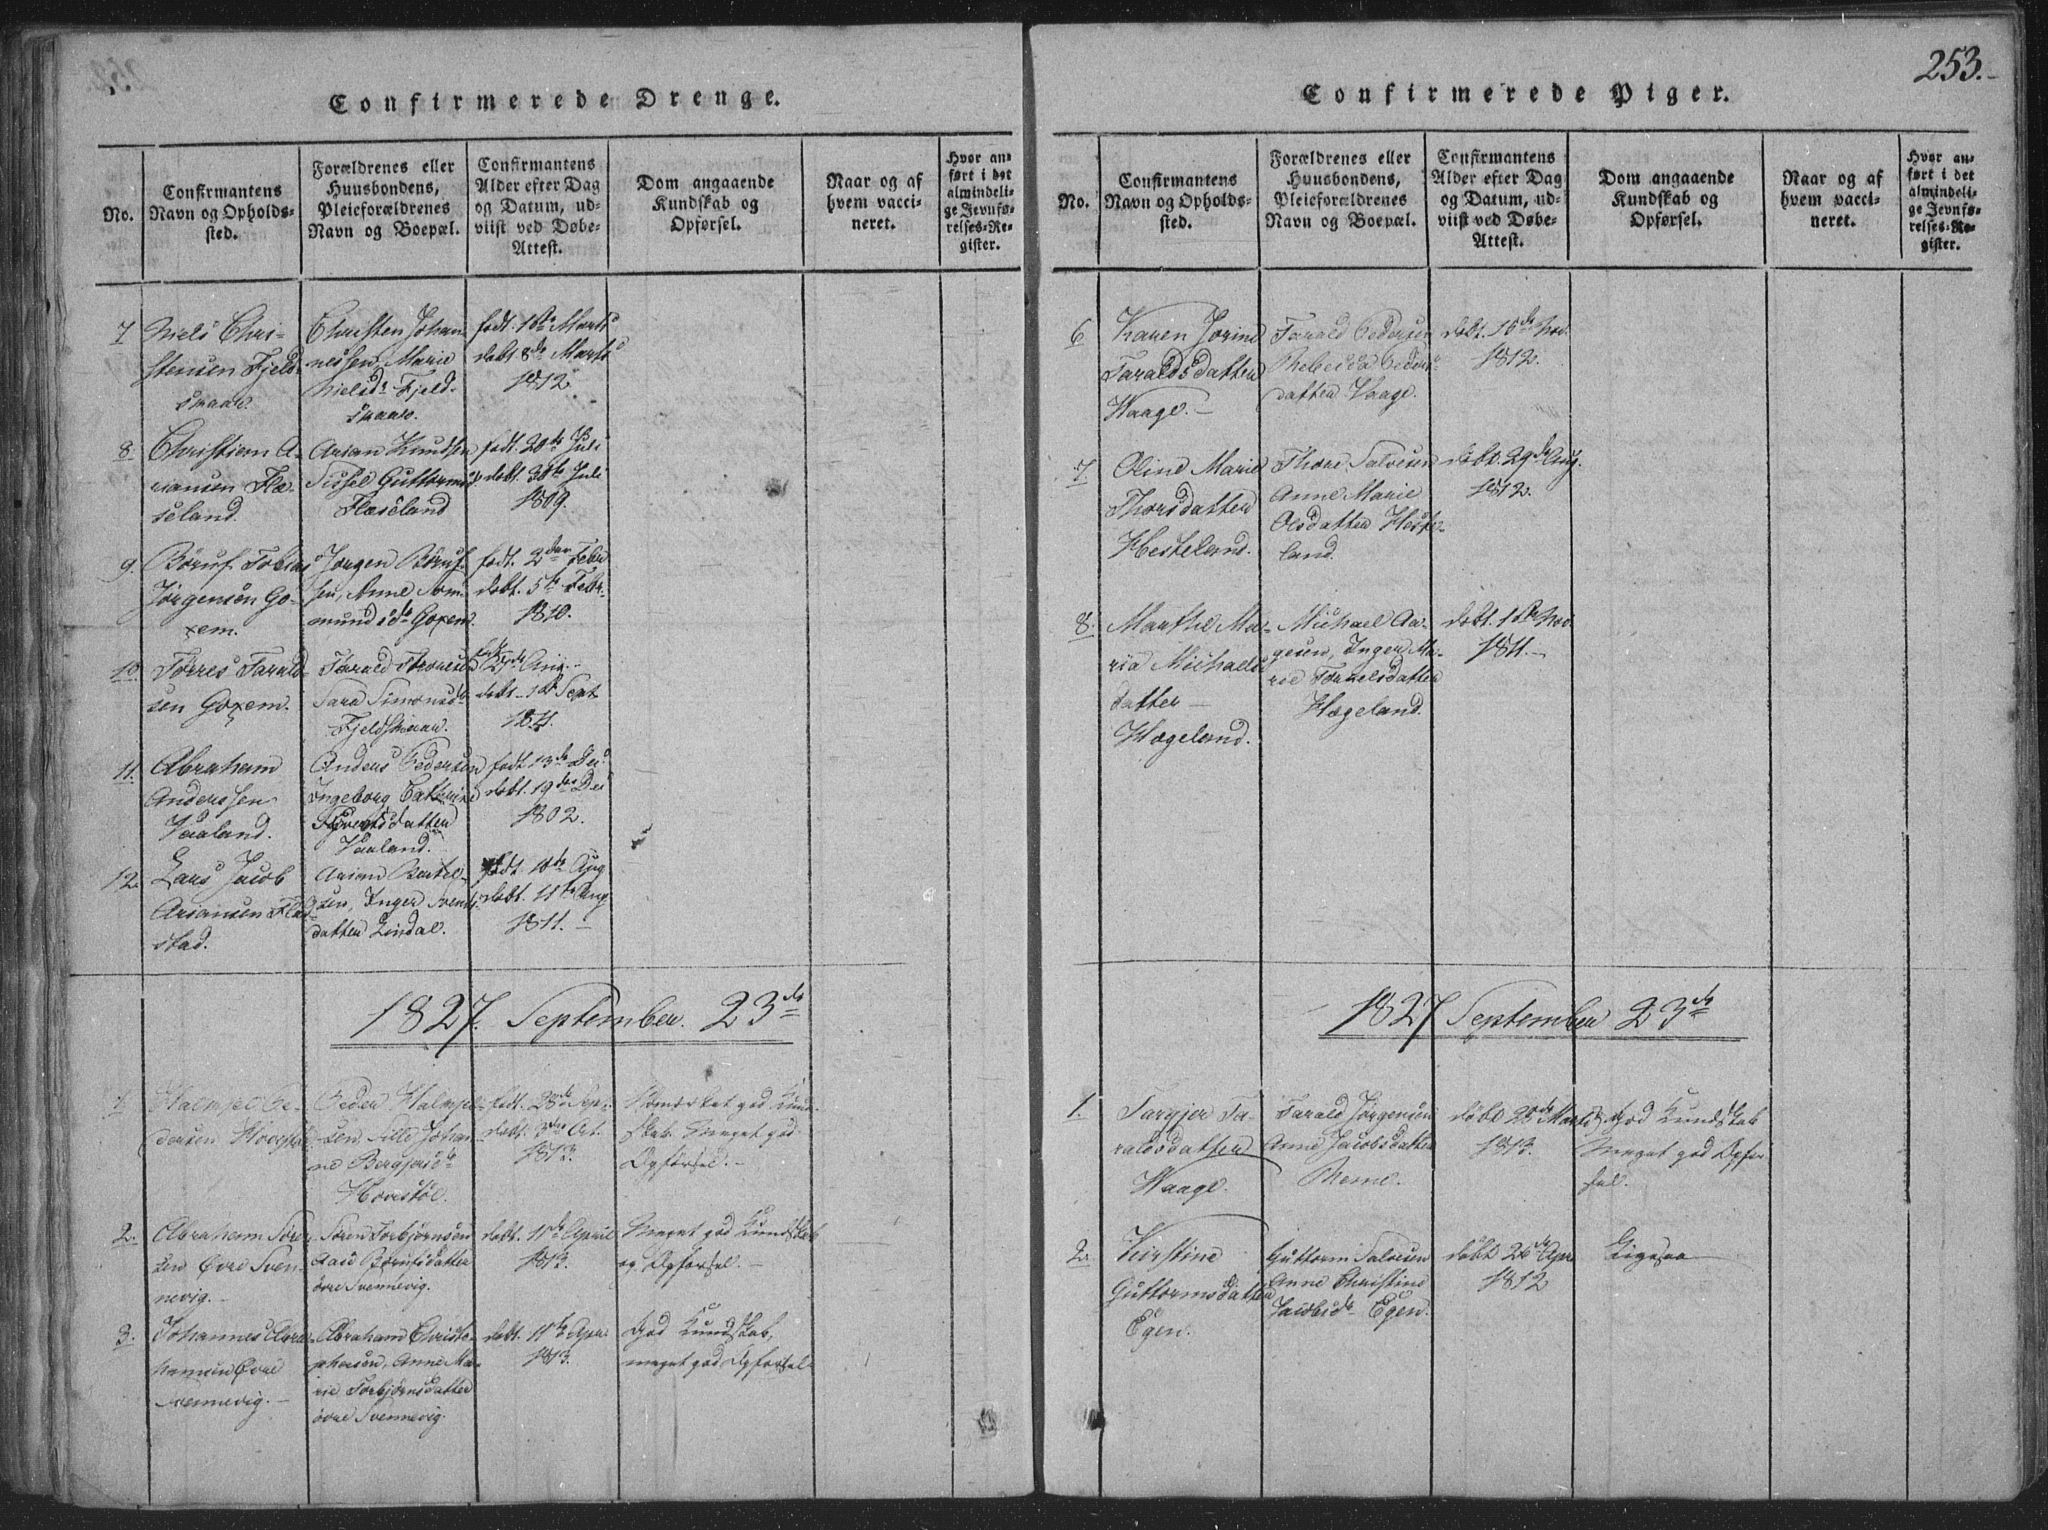 Confirmerede Drenge.
No.
Confirmantens
Navn og Opholds-
sted.
Forældrenes eller
Huusbondens,
Pleieforældrenes
Navn og Boepæl.
Confirmantens
Alder efter Dag
og Datum, ud-
viist ved Døbe-
Attest.
Dom angaaende
Kundskab og
Opførsel.
Naar og af
hvem vacci-
neret.
Hvor an-
ført i det
almindeli-
ge Jevnfø-
relses-Re-
gister.
7
Niels Chri-
stensen Fjeld-
skaar.
Christen Johan-
nessen, Marie
Nielsd. Fjeld-
skaar.
født. 1de Marts
døbt 8de Marts
1812.
8.
Christian A-
riansen Flæ-
seland.
Arian Knudsen
Sissel Guttorms
Flæseland
født. 20de Juli
døbt. 30te Juli
1809.
9.
Børuf Tobias
Jørgensen Go-
xem.
Jørgen Børuf-
sen, Anne Aom-
mundsdr Goxem.
født. 2den Febr
døbt. 5te Febr.
1810.
10.
Tørres Tarald-
sen Goxem.
Tarald Thoresen
Sara Simonsd.
Fjeldskaar.
født 27de Aug.
døbt. 1de Sept
1811.
11.
Abraham
Anderssen
Vaaland.
Anders Pedersen
Ingeborg Cathrine
Vaaland.
født 13de Dec
døbt. 19de Dec
1802.
12.
Lars Jacob
Ariansen Flad-
stad.
Arian Bertel-
sen, Inger Svends-
datter Lindal.
født. 10de Aug
døbt. 11te Aug
1811. —
1827. September. 23de
1
Halvsel Pe-
dersen Hovestøl
Peder Halvsel-
sen, Sille Johan-
ne Bergjersdr
Hovestøl.
født. 28de Sep-
døbt. 3die Oct.
1813.
Udmærket god Kund-
skab. Meget god
Opførsel. —
2.
Abraham Søren-
sen Øvre Sven-
nevig. —
Søren Torbjørnsen
Aase Børufsdatter
øvre Svennevig.
døbt. 11de April
1813.
Meget god Kundskab
og Opførsel. —
3.
Johannes Abra-
hamsen Øvre
Svennevig. —
Abraham Christo-
phersen, Anne Ma-
rie Torbjørnsdatter
øvre Svennevig.
døbt. 11te Apr.
1813.
God Kundskab,
meget god Opførsel.
253.
Confirmerede Piger.
No.
Confirmantens
Navn og Opholds-
sted.
Forældrenes eller
Huusbondens,
Pleieforældrenes
Navn og Boepæl.
Confirmantens
Alder efter Dag
og Datum, ud-
viist ved Døbe-
Attest.
Dom angaaende
Kundskab og
Opførsel.
Naar og af
hvem vacci-
neret.
Hvor an-
ført i det
almindeli-
ge Jevnfø-
relses-Re-
gister.
6
Karen Jorine
Taraldsdatter
Waage. —
Tarald Pedersen
Rebecka Peders-
datter Vaage.
døbt. 15de Nov.
1812.
7.
Oline Marie
Thorsdatter
Hesteland.
Thore Salvesen
Anne Marie
Olsdatter Heste-
land.
døbt. 29de Aug.
1812.
8.
Marthe Ma-
ria Michaels
datter —
Hægeland.
Michael Aa-
gesen, Inger Ma-
rie Tarelsdatter
Hægeland.
døbt. 1de Nov
1811. —
1827 September 23de
1.
Targjer Ta-
raldsdatter
Waage.
Tarald Jørgensen
Anne Jacobsdatter
Neme.
døbt 28de Marts
1813.
God Kundskab
Meget god Opfør-
sel.
2.
Kirstine
Guttormsdatter
Egen.
Guttorm Salvesen
Anne Christine
Jacobsdr Egen.
døbt 26de Apr
1812
Ligesaa